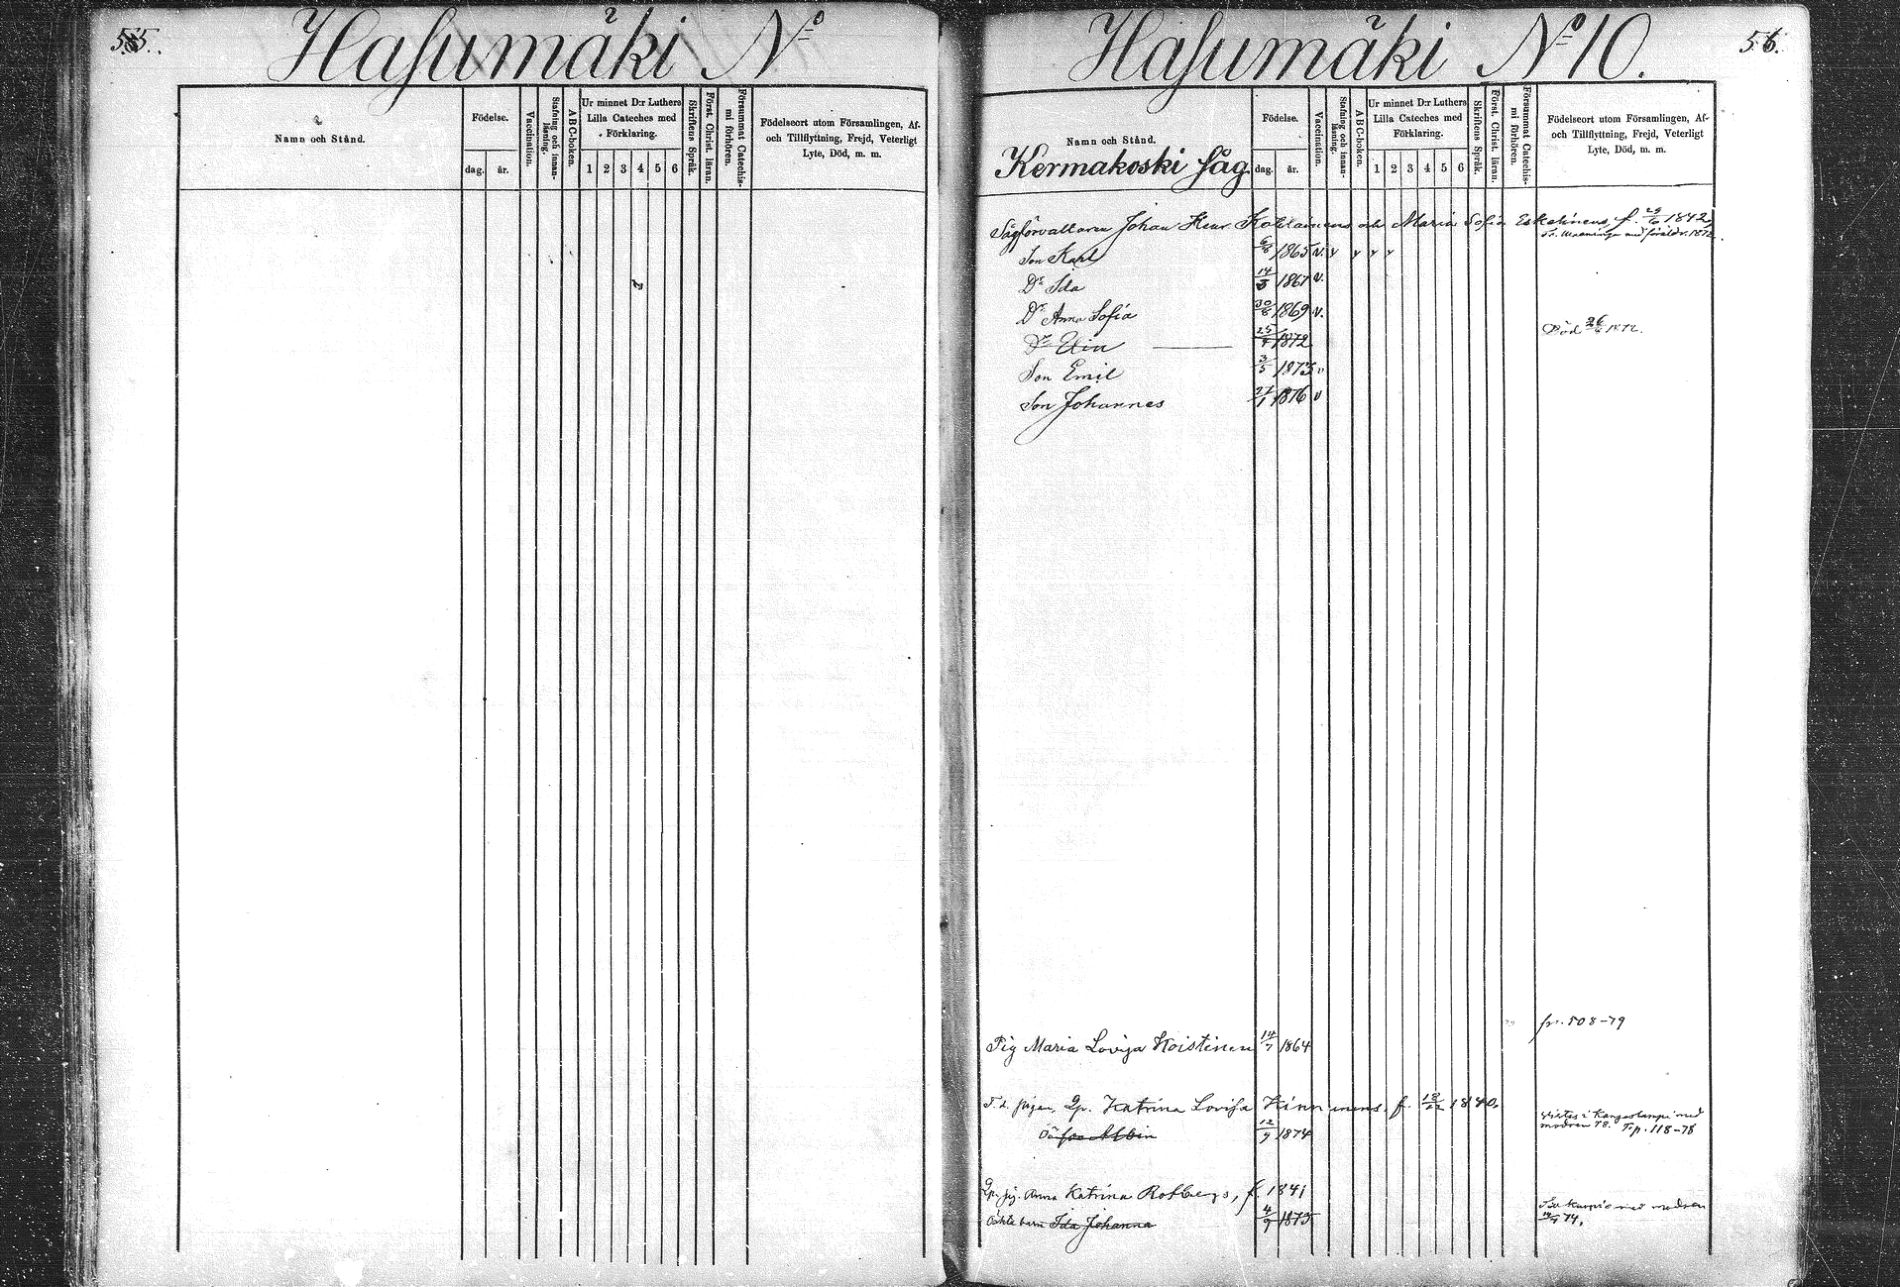 55.
Hasumäki No
Namn och Stånd.
Födelse.
dag. år.
Vaccination.
Stafning och innan-läsning.
ABC-boken.
Ur minnet D:r Luthers
Lilla Cateches med
Förklaring.
1 2 3 4 5 6
Skriftens Språk.
Först. Christ. läran.
Försummat Catechis-mi förhören.
Födelseort utom Församlingen, Af-
och Tillflyttning, Frejd, Veterligt
Lyte, Död, m. m.
56.
Hasumäki No 10.
Namn och Stånd.
Kermakoski såg.
Födelse.
dag. år.
Vaccination.
Stafning och innan-läsning.
ABC-boken.
Ur minnet D:r Luthers
Lilla Cateches med
Förklaring.
1 2 3 4 5 6
Skriftens Språk.
Först. Christ. läran.
Försummat Catechis-mi förhören.
Födelseort utom Församlingen, Af-
och Tillflyttning, Frejd, Veterligt
Lyte, Död, m. m.
Sågförvaltaren Johan Henr. och Maria Sofia Eskelinens f. 1842
Son Karl 1865 v. y y y y
Dr Ida 14/3 1867 v.
Dr Anna Sofia 30/6 1869 v. Död 1872.
Dr Elin 25/4 1872
Son Emil 3/5 1873 v
Son Johannes 27/1 1876 v
fr. 508-79
Pig Maria Lovisa Koistinen 14/7 1864
F. d. pigan, Qp. Katrina Lovisa Kinnunens, f. 1840.
Albin 12/9 1874
modren 78. Tp. 118-78
Qp. pig. Anna Katrina Rotbergs, f. 1841
Oäkta barn Ida Johanna 4/9 1873
Kuopio med modren
74.